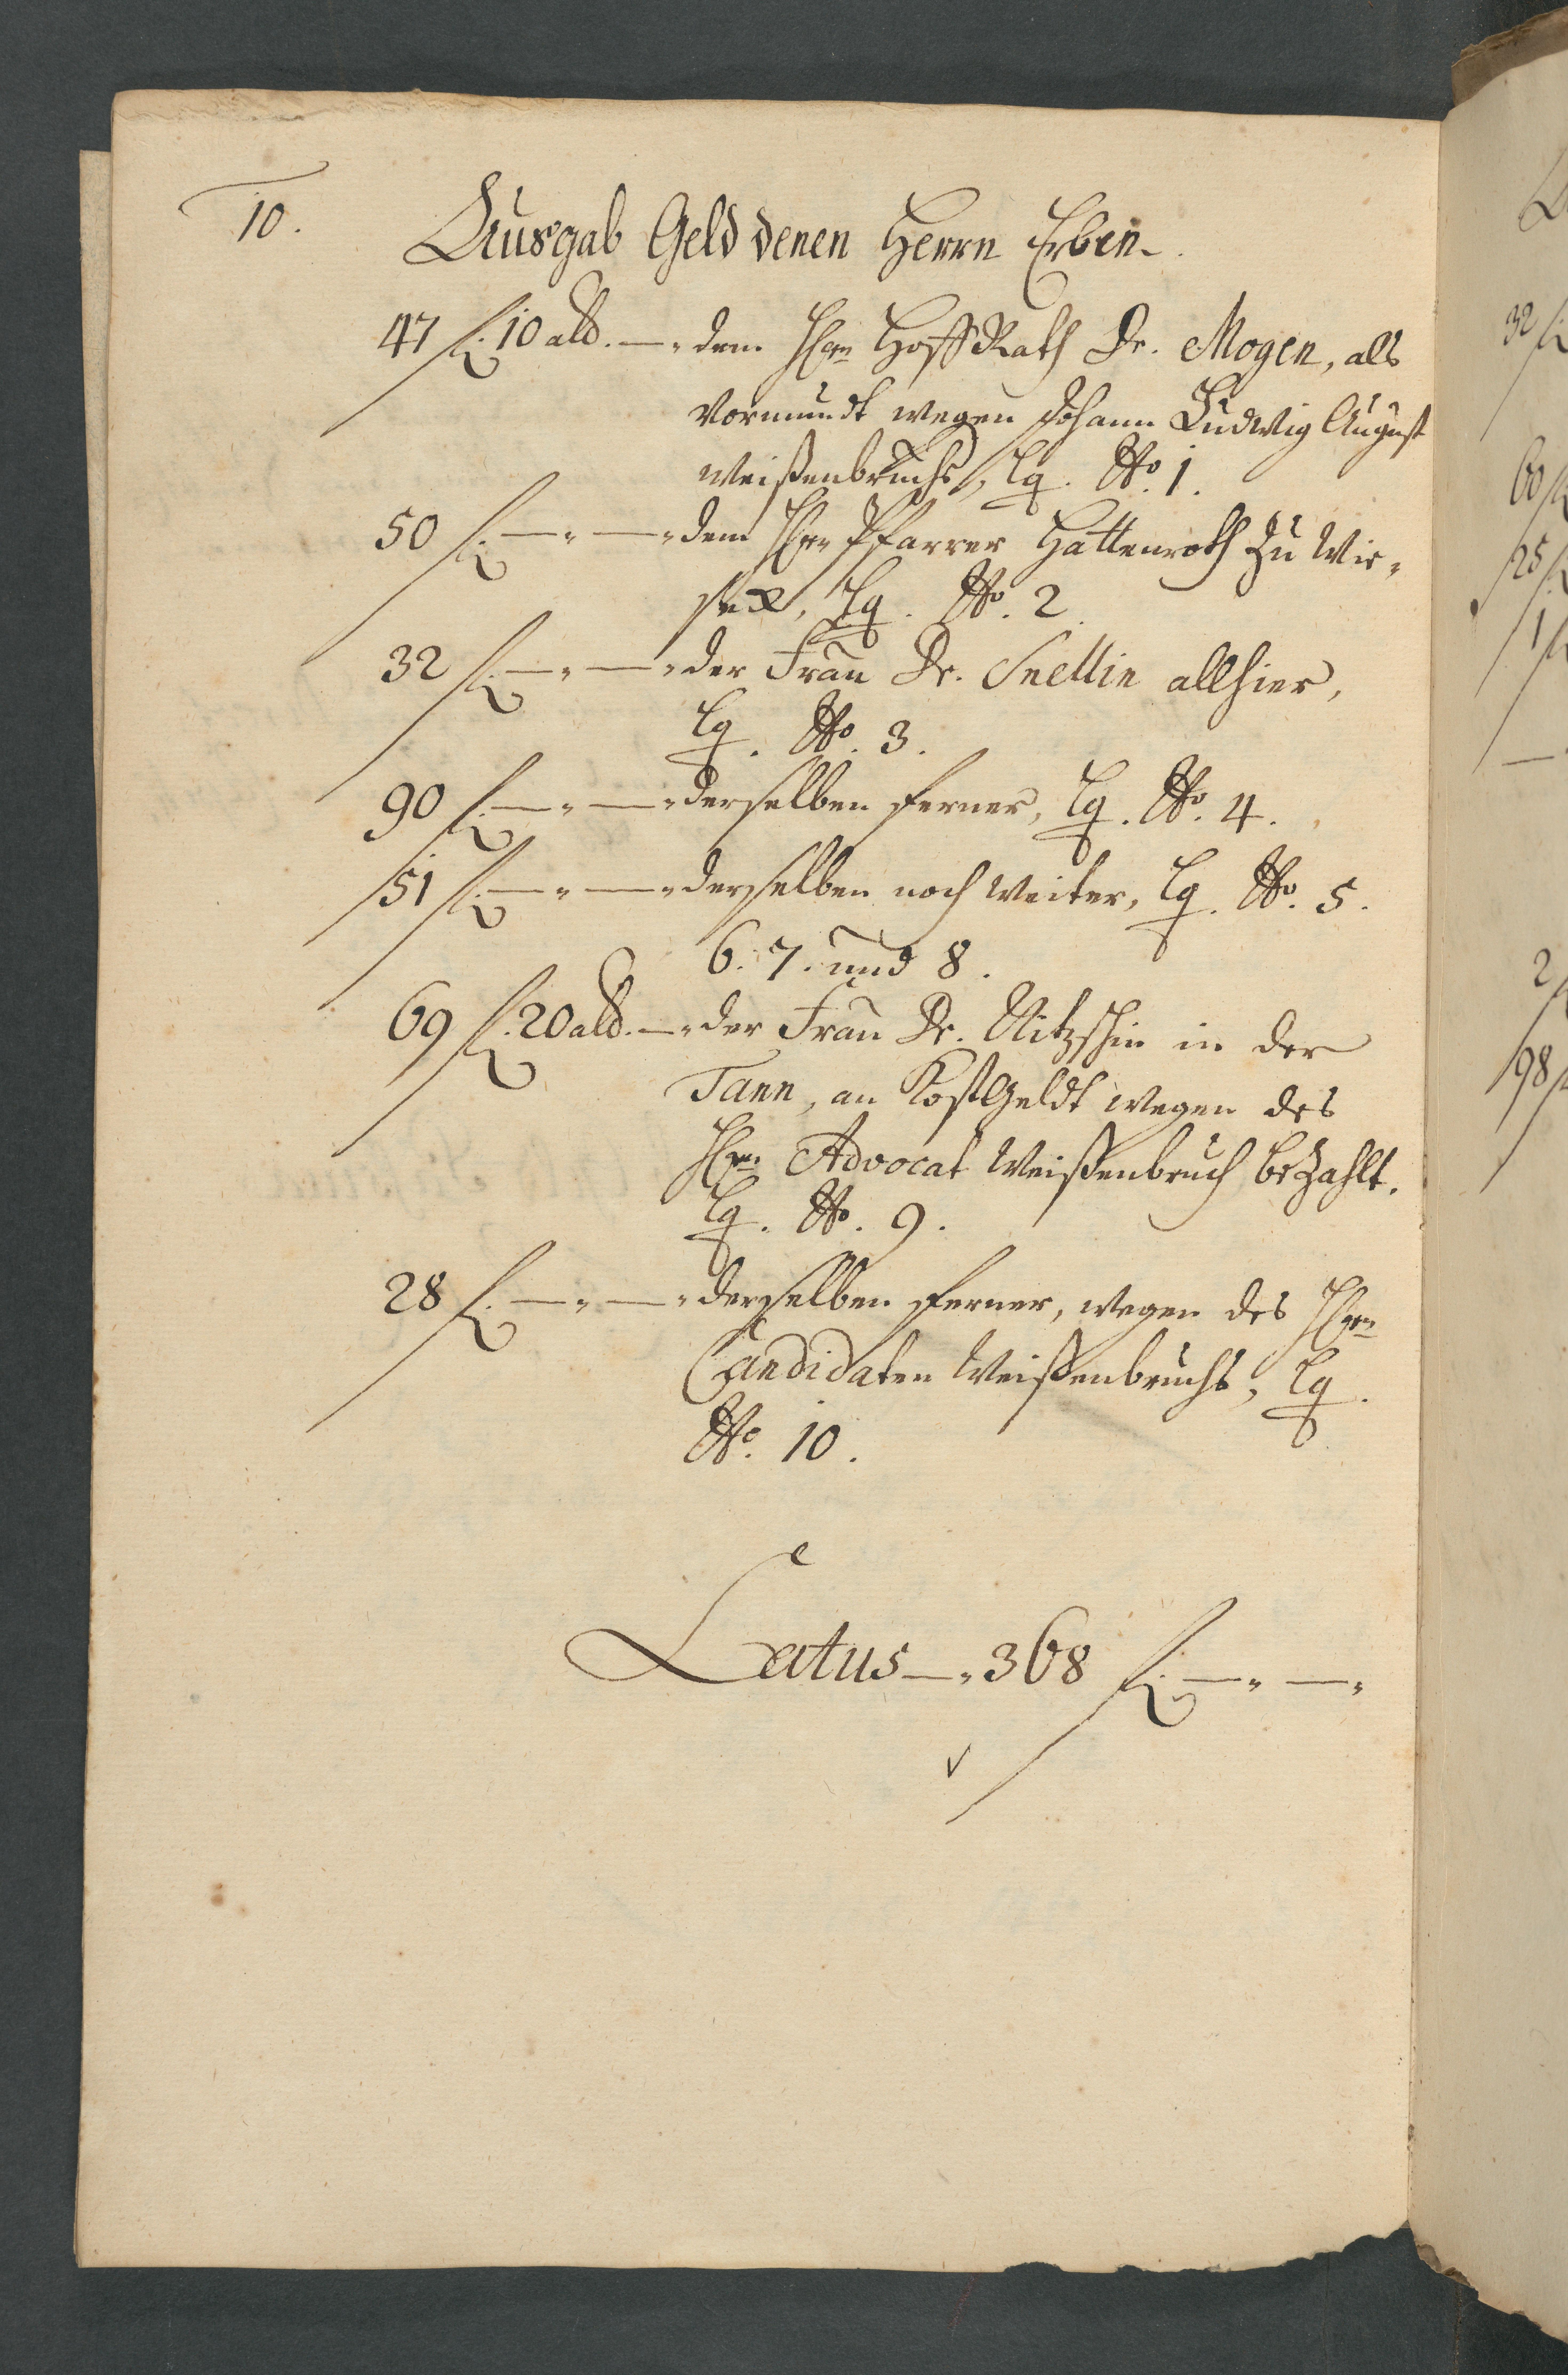 10.
Ausgab Geld denen Herrn Erben.
47 fl. 10 alb. —. dem Hrn HoffRath Dr. Mogen, als
Vormundt wegen Johann Ludwig August
Weißenbruchs, Lq. No. 1.
50 fl. — " — " dem Hrn Pfarrer Hattenroth zu Wie-
seck, Lq. No. 2.
32 fl. — " — " der Frau Dr. Snellin allhier,
Lq. No. 3.
90 fl. — " — " derselben ferner, Lq. No. 4.
51 fl. — " — " derselben noch weiter, Lq. No. 5.
6. 7. und 8.
69 fl. 20 alb. —. der Frau Dr. Nitzschin in der
Tann, an Kostgeldt wegen des
Hrn Advocat Weißenbruch bezahlt.
Lq. No. 9.
28 fl. — " — " derselben ferner, wegen des Hrn
Candidaten Weißenbruchs, Lq.
No. 10.
Latus —. 368 fl. — " — "
32 fl
60 fl
25 fl
1 fl
2 fl
98 fl